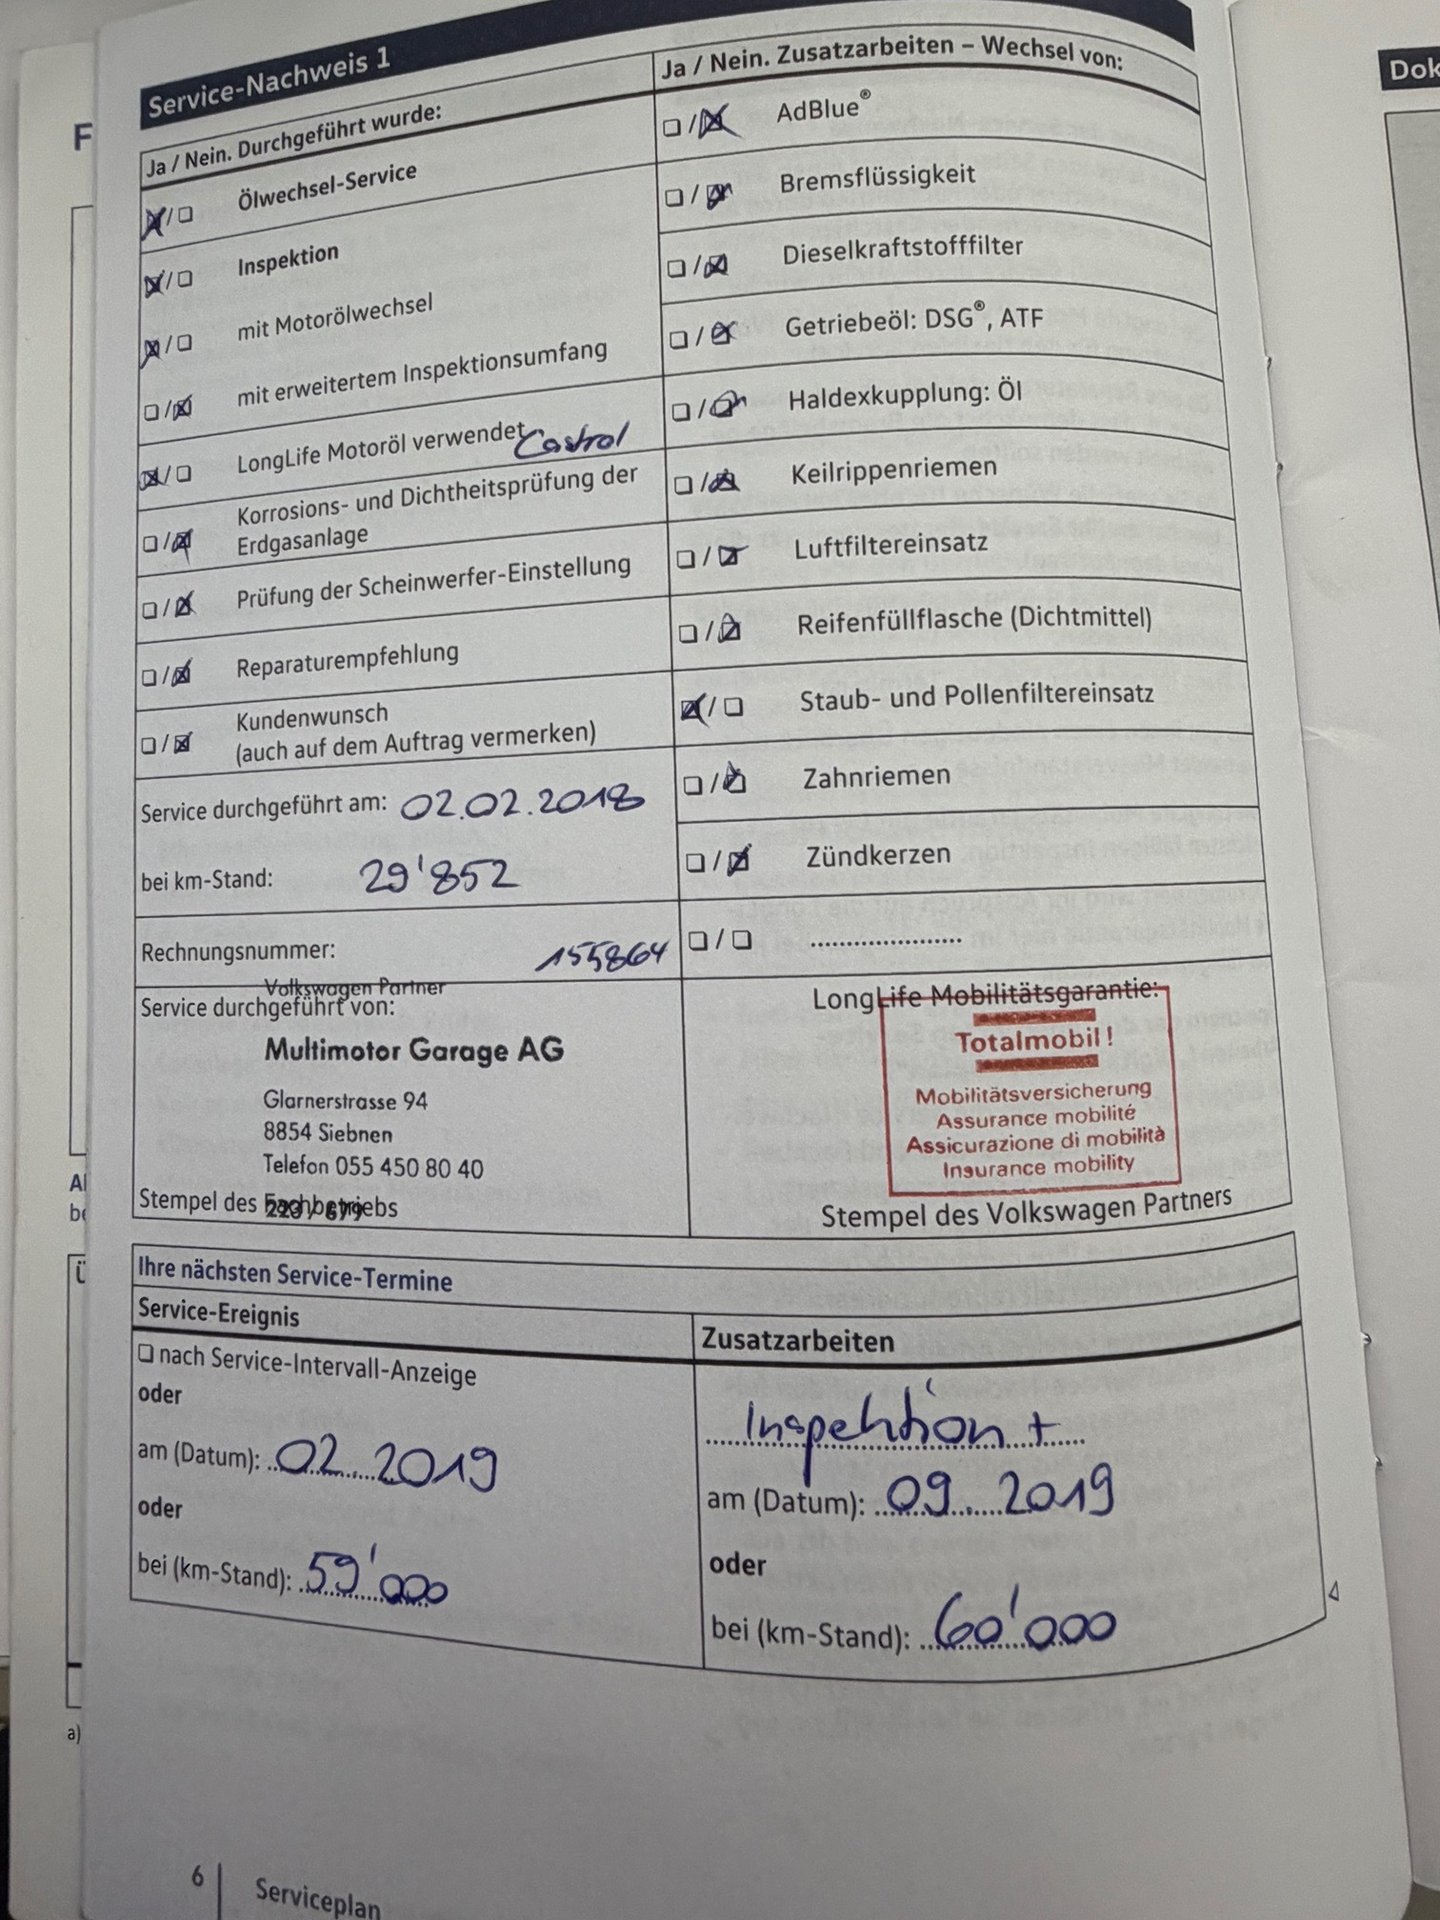 Service-Nachweis 1
Ja / Nein. Durchgeführt wurde:
Ölwechsel-Service
Inspektion
mit Motorölwechsel
mit erweitertem Inspektionsumfang
LongLife Motoröl verwendet Castrol
Korrosions- und Dichtheitsprüfung der
Erdgasanlage
Prüfung der Scheinwerfer-Einstellung
Reparaturempfehlung
Kundenwunsch
(auch auf dem Auftrag vermerken)
Service durchgeführt am: 02.02.2018
bei km-Stand: 29'852
Rechnungsnummer: 155864
Volkswagen Partner
Service durchgeführt von:
Multimotor Garage AG
Glarnerstrasse 94
8854 Siebnen
Telefon 055 450 80 40
Stempel des Fachbetriebs
Ja / Nein. Zusatzarbeiten – Wechsel von:
AdBlue®
Bremsflüssigkeit
Dieselkraftstofffilter
Getriebeöl: DSG®, ATF
Haldexkupplung: Öl
Keilrippenriemen
Luftfiltereinsatz
Reifenfüllflasche (Dichtmittel)
Staub- und Pollenfiltereinsatz
Zahnriemen
Zündkerzen
LongLife Mobilitätsgarantie:
Totalmobil!
Mobilitätsversicherung
Assurance mobilité
Assicurazione di mobilità
Insurance mobility
Stempel des Volkswagen Partners
Ihre nächsten Service-Termine
Service-Ereignis
nach Service-Intervall-Anzeige
oder
am (Datum): 02. 2019
oder
bei (km-Stand): 59'000
Zusatzarbeiten
Inspektion +
am (Datum): 09. 2019
oder
bei (km-Stand): 60'000
6
Serviceplan
Dok
a)